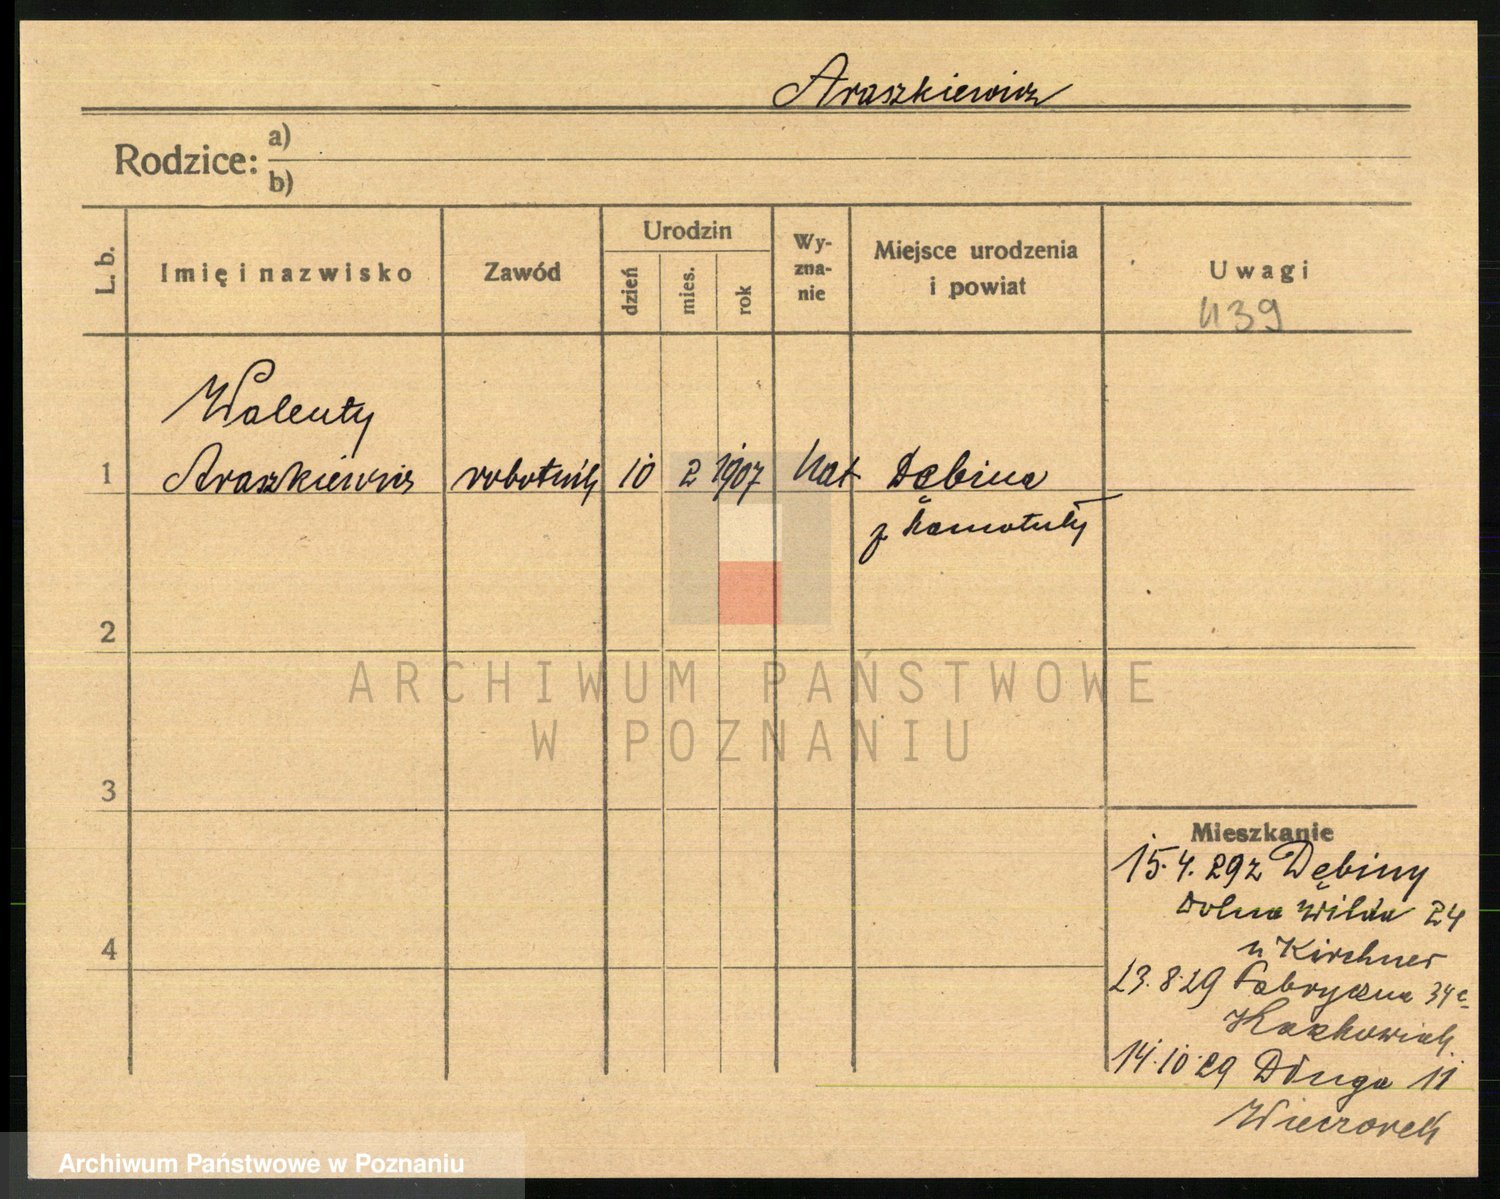 Araszkiewicz
Rodzice: a)
b)
L. b.
Imię i nazwisko
Zawód
Urodzin
dzień
mies.
rok
Wy-
zna-
nie
Miejsce urodzenia
i powiat
Uwagi
439
1
Walenty
Araszkiewicz
robotnik
10
2
1907
kat
Dębina
p Szamotuły
2
3
4
Mieszkanie
15.4.29 z Dębiny
Dolna Wilda 24
u Kirchner
23.8.29 Fabryczna 34c
14.10.29 Długa 11
Wieczorek
ARCHIWUM PAŃSTWOWE
W POZNANIU
Archiwum Państwowe w Poznaniu